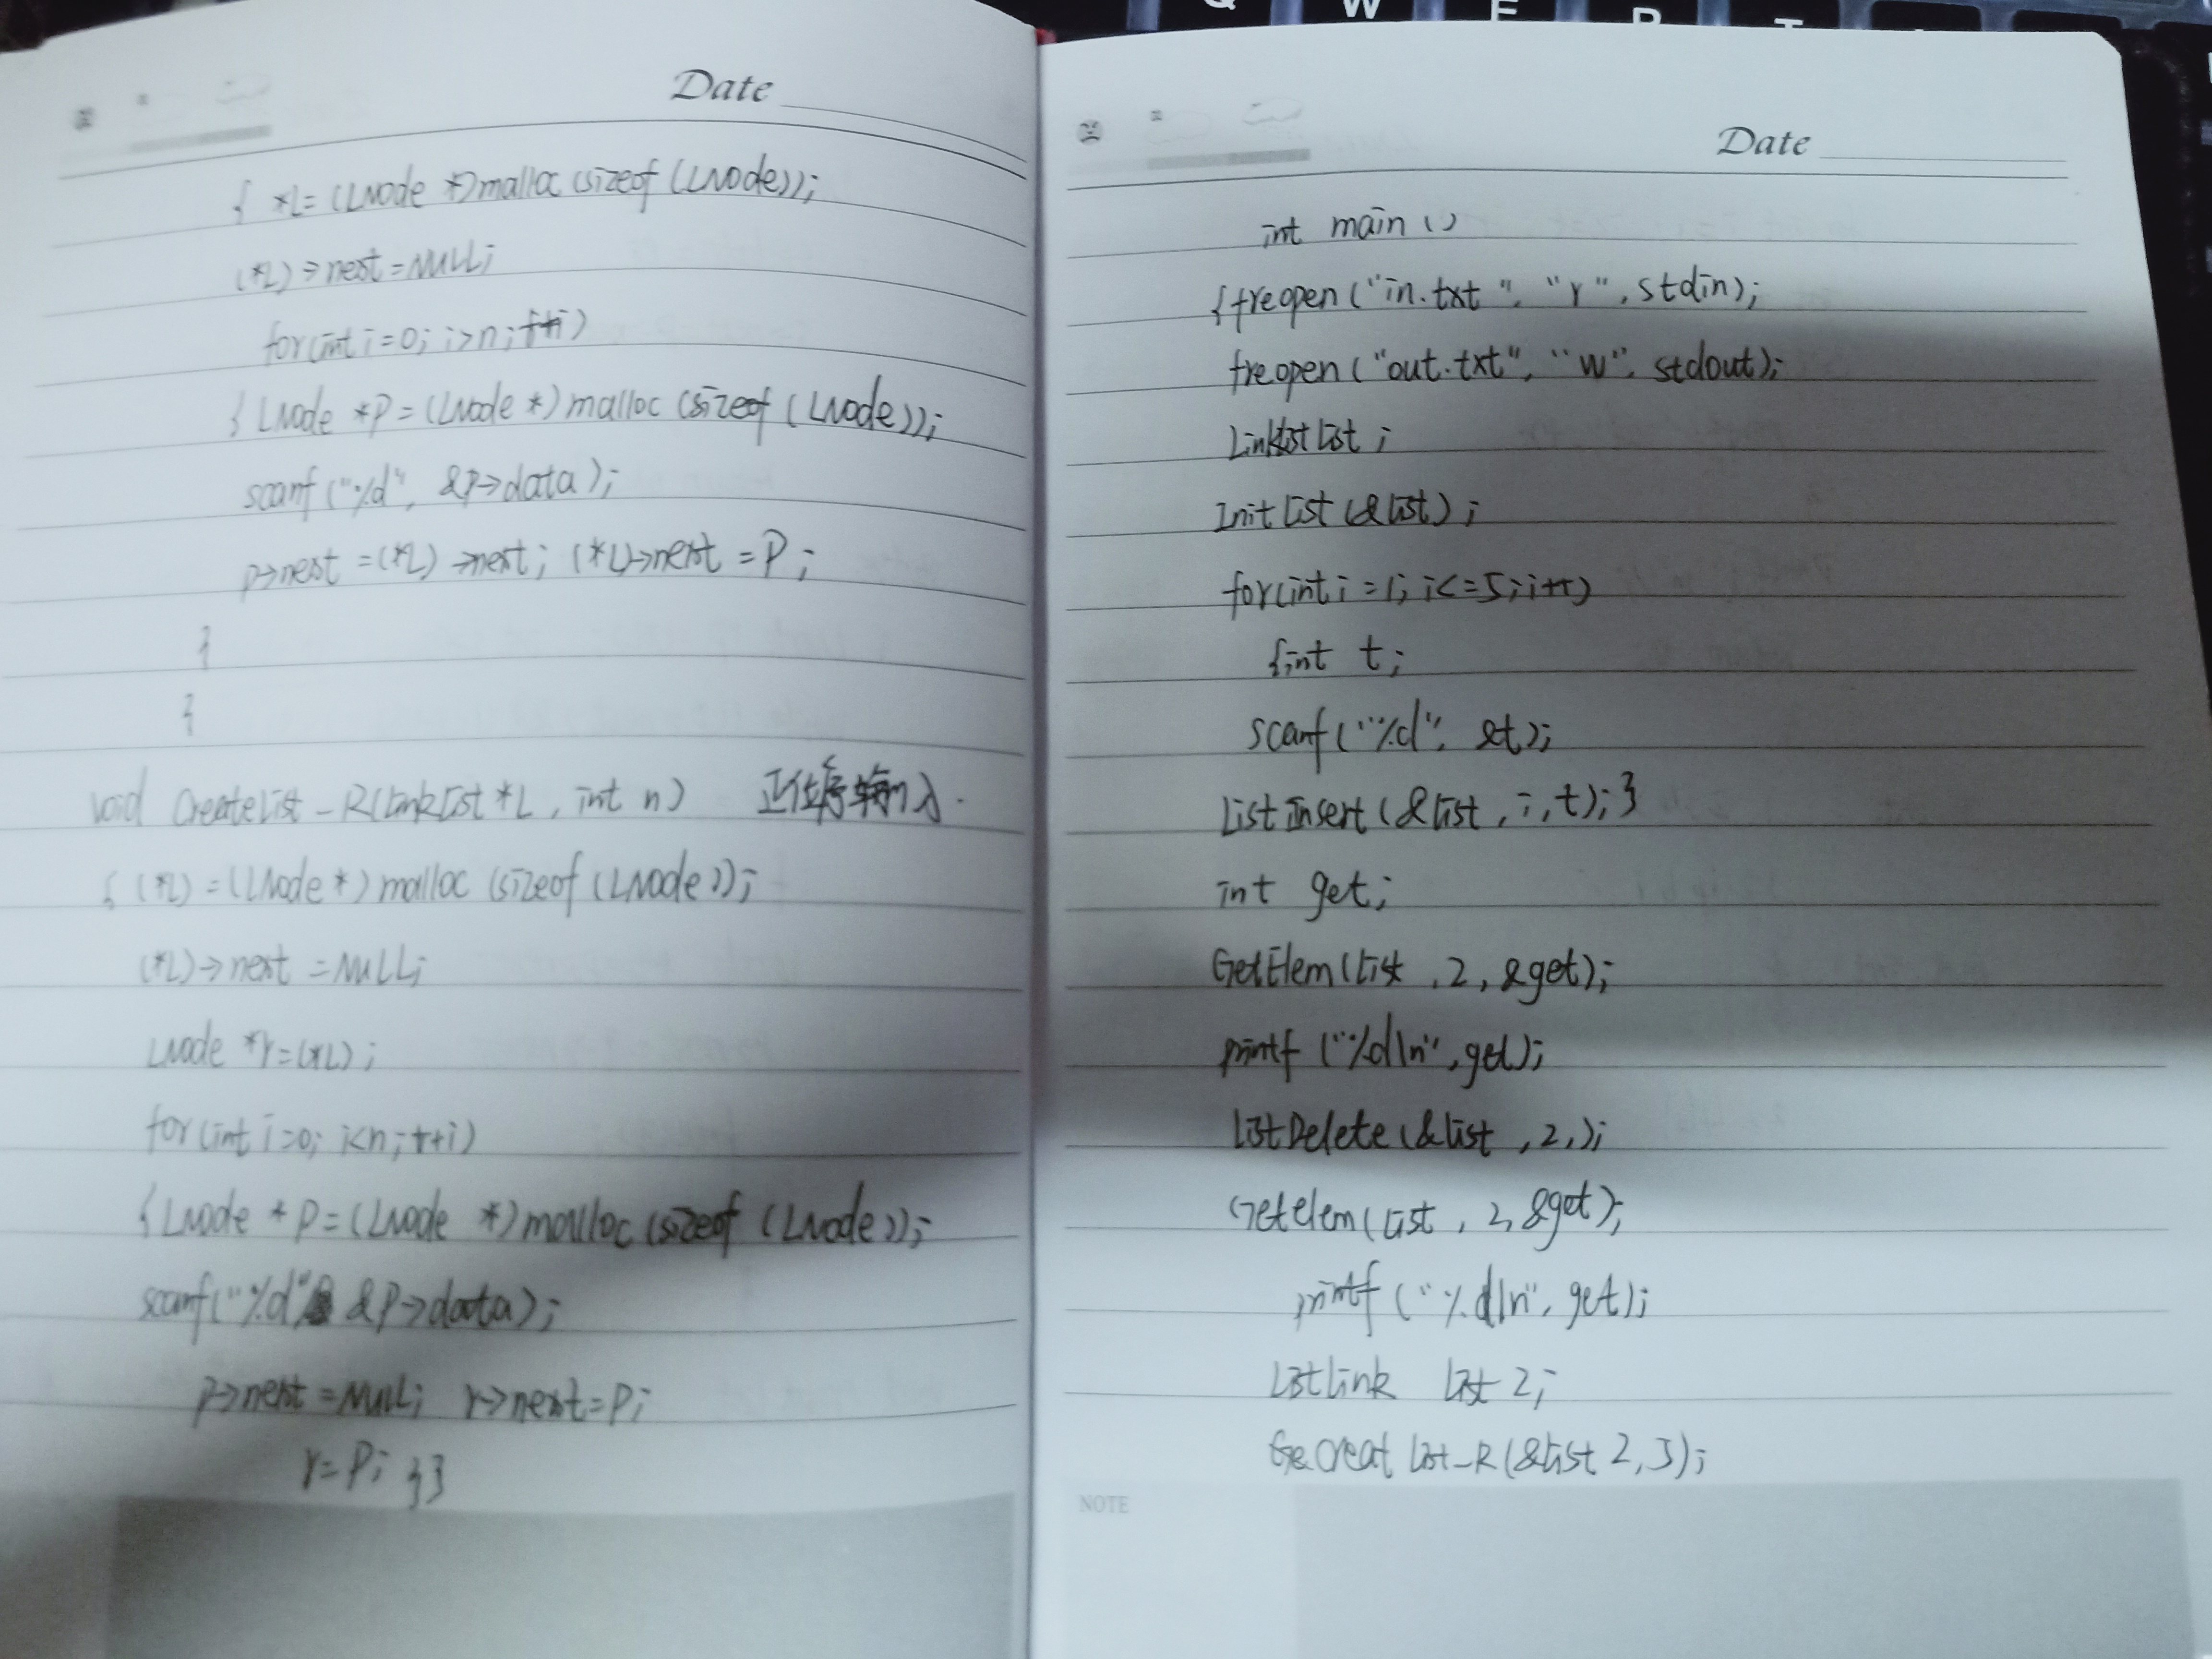 Q W E R T
Date
{ *L=(LNode *)malloc(sizeof(LNode));
(*L)→next=NULL;
for(int i=0; i>n; ++i)
{ LNode *P=(LNode *)malloc(sizeof(LNode));
scanf("%d", &P→data);
p→next=(*L)→next; (*L)→next=P;
}
}
void CreateList_R(LinkList *L, int n) 正位序输入.
{ (*L)=(LNode*)malloc(sizeof(LNode));
(*L)→next=NULL;
LNode *r=(*L);
for(int i=0; i<n; ++i)
{ LNode *P=(LNode *)malloc(sizeof(LNode));
scanf("%d", &P→data);
p→next=NULL; r→next=P;
r=P; }}
Date
int main()
{freopen("in.txt","r",stdin);
freopen("out.txt","w",stdout);
LinkList list;
InitList(&list);
for(int i=1; i<=5; i++)
{int t;
scanf("%d", &t);
ListInsert(&list,i,t);}
int get;
GetElem(list,2,&get);
printf("%d\n",get);
ListDelete(&list,2,);
Getelem(list,2,&get);
printf("%d\n",get);
ListLink list2;
CreatList_R(&list2,3);
NOTE